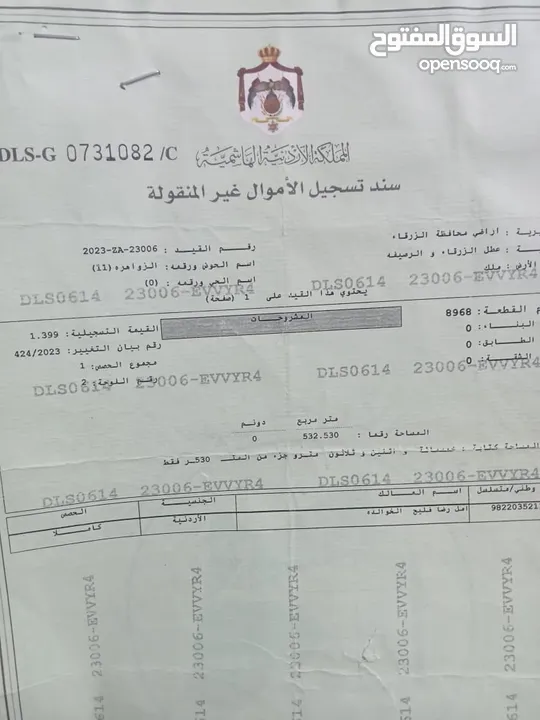 السوق المفتوح
opensooq.com
DLS-G 0731082 /C
المملكة الأردنية الهاشمية
سند تسجيل الأموال غير المنقولة
يرية : اراضي محافظة الزرقاء
رقم القيد : 2023-ZA-23006
ة : عطل الزرقاء و الرصيفه
اسم الحوض ورقمه: الزواهره (11)
الأرض: ملك
اسم الحي ورقمه : (0)
DLS0614 23006-EVVYR4 DLS0614 23006-EVVYR4
يحتوي هذا القيد على 1 (صفحة)
م القطعة: 8968
المشروحات
القيمة التسجيلية: 1.399
البناء: 0
رقم بيان التغيير: 424/2023
الطابق: 0
مجموع الحصص: 1
الشقة: 0
رقم اللوحة: 2
DLS0614 23006-EVVYR4 DLS0614 23006-EVVYR4
متر مربع دونم
المساحة رقما : 532.530 0
المساحة كتابة : خمسمائة و اثنين و ثلاثون متر و جزء من المتر 530ر فقط
DLS0614 23006-EVVYR4 DLS0614 23006-EVVYR4
وطني/متسلسل اسم المالك الجنسية الحصص
9822035211 امل رضا فليح الخوالده الأردنية كاملا
23006-EVVYR4 23006-EVVYR4 23006-EVVYR4 23006-EVVYR4 23006-EVVYR4
DLS0614